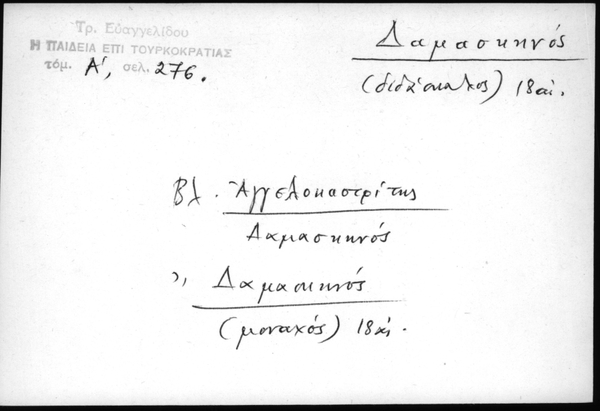 Τρ. Εὐαγγελίδου
Η ΠΑΙΔΕΙΑ ΕΠΙ ΤΟΥΡΚΟΚΡΑΤΙΑΣ
τόμ. Α', σελ. 276.
Δαμασκηνός
(διδάσκαλος) 18 αἰ.
Βλ. Ἀγγελοκαστρίτης
Δαμασκηνός
" Δαμασκηνός
(μοναχός) 18 αἰ.